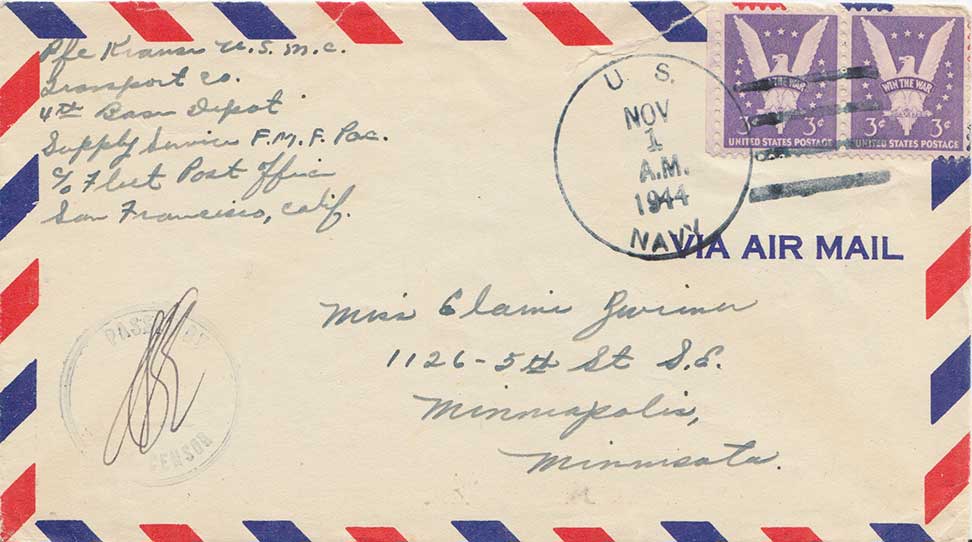 Pfc Krause U.S.M.C.
Transport Co.
4th Base Depot
Supply Service F.M.F. Pac.
c/o Fleet Post Office
San Francisco, Calif.
U. S.
NOV
1
A.M.
1944
NAVY
WIN THE WAR
3¢ 3¢
UNITED STATES POSTAGE
WIN THE WAR
3¢ 3¢
UNITED STATES POSTAGE
VIA AIR MAIL
Miss Elaine
1126-5th St S.E.
Minneapolis,
Minnesota.
PASSED BY
CENSOR